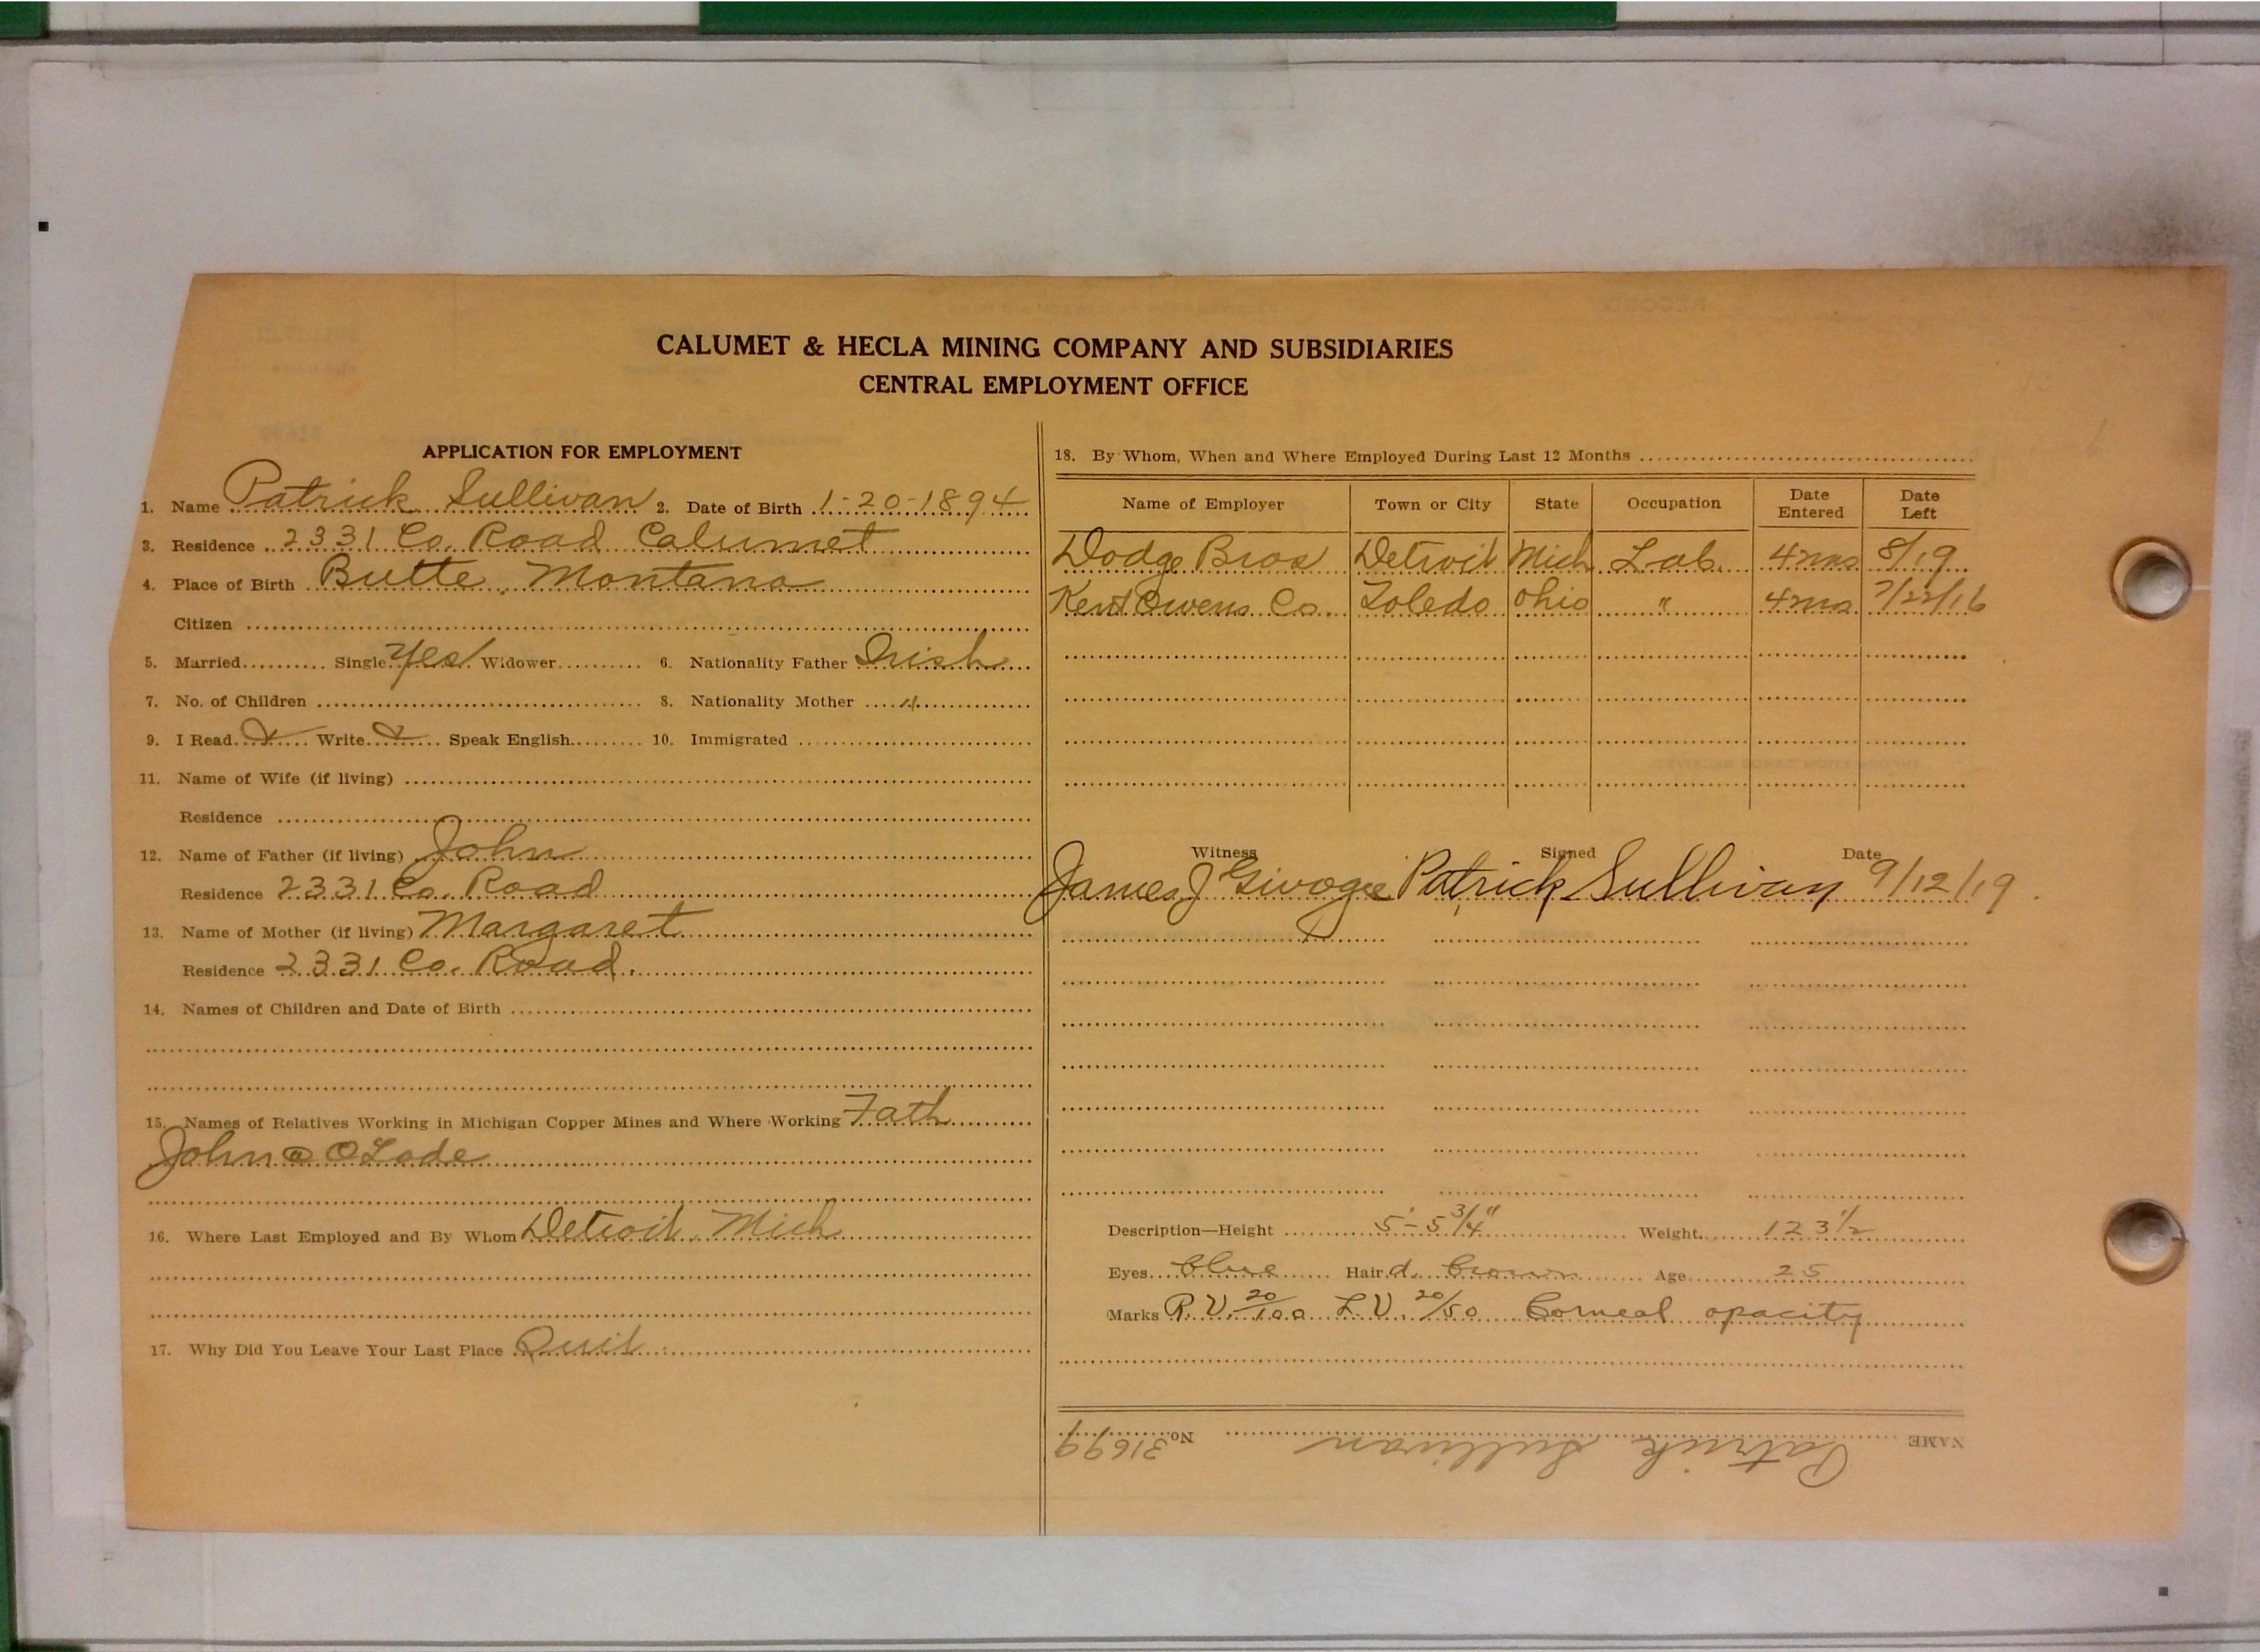 CALUMET & HECLA MINING COMPANY AND SUBSIDIARIES
CENTRAL EMPLOYMENT OFFICE
APPLICATION FOR EMPLOYMENT
1. Name Patrick Sullivan 2. Date of Birth 1-20-1894
3. Residence 2331 Co. Road Calumet
4. Place of Birth Butte, Montana
Citizen
5. Married Single Yes Widower 6. Nationality Father Irish
7. No. of Children 8. Nationality Mother "
9. I Read Write Speak English 10. Immigrated
11. Name of Wife (if living)
Residence
12. Name of Father (if living) John
Residence 2331 Co. Road
13. Name of Mother (if living) Margaret
Residence 2331 Co. Road.
14. Names of Children and Date of Birth
15. Names of Relatives Working in Michigan Copper Mines and Where Working Fath
John @ O Lode
16. Where Last Employed and By Whom Detroit, Mich
17. Why Did You Leave Your Last Place Quit
18. By Whom, When and Where Employed During Last 12 Months
Name of Employer Town or City State Occupation Date Entered Date Left
Dodge Bros Detroit Mich Lab. 4 mos 8/19
Kent Owens Co. Toledo Ohio " 4 mos 7/22/16
Witness Signed Date
James J Patrick Sullivan 9/12/19
Description—Height 5'-5 3/4" Weight 123 1/2
Eyes blue Hair d. brown Age 25
Marks R.V. 20/100 L.V. 20/50 Corneal opacity
NAME Patrick Sullivan No. 31699